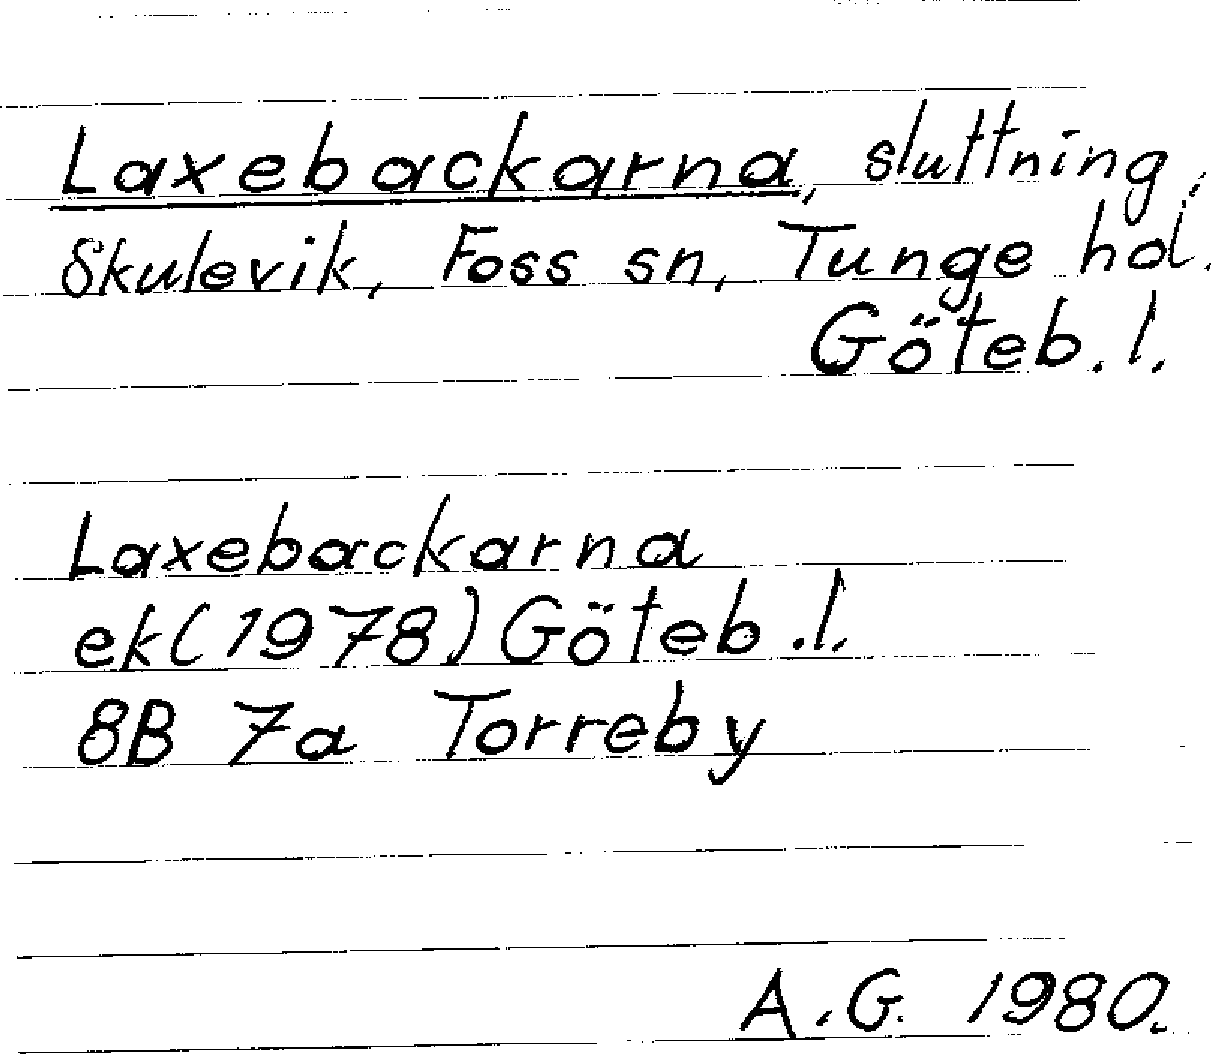 Laxebackarna, sluttning,
Skulevik, Foss sn, Tunge hd.
Göteb. l.
Laxebackarna
ek(1978) Göteb. l.
8B 7a Torreby
A.G. 1980.